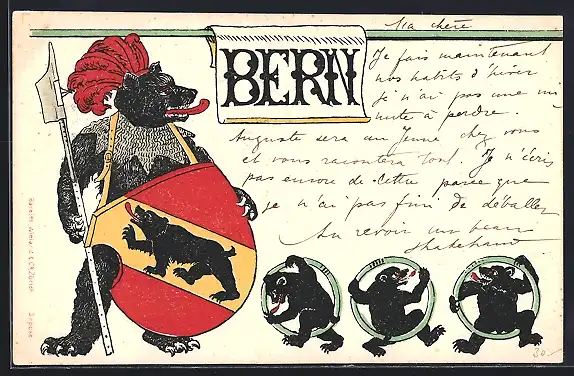 Ma chère
BERN
Je fais maintenant
nos habits d'hiver
je n'ai pas une mi
nute à perdre.
Auguste sera au Jeune chez vous
et vous racontera tout. Je n'écris
pas encore de lettre parce que
je n'ai pas fini de déballer
Au revoir un beau
shakehand
Déposé
30